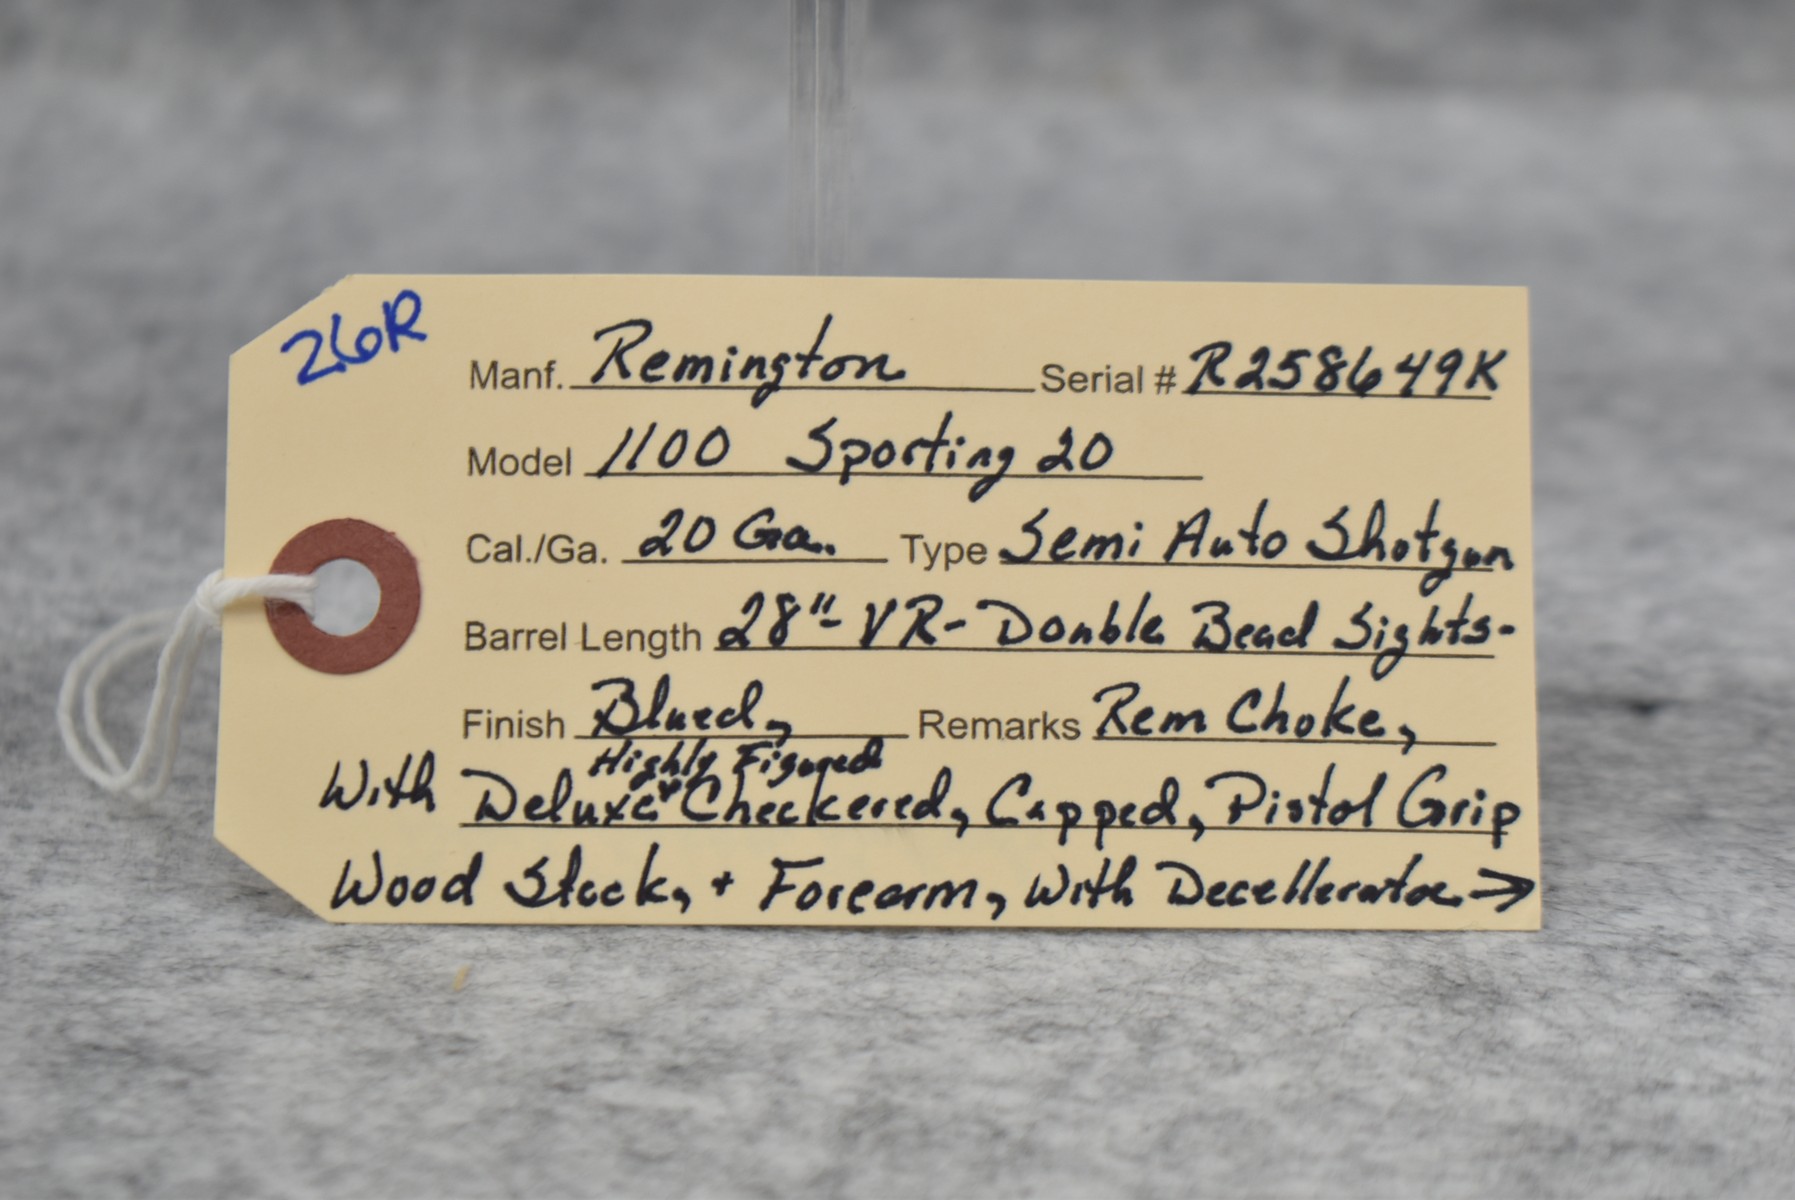 26R
Manf. Remington Serial # R258649K
Model 1100 Sporting 20
Cal./Ga. 20 Ga. Type Semi Auto Shotgun
Barrel Length 28"- VR- Double Bead Sights-
Finish Blued, Remarks Rem Choke,
Highly Figured
With Deluxe Checkered, Capped, Pistol Grip
Wood Stock, + Forearm, With Decellerator →